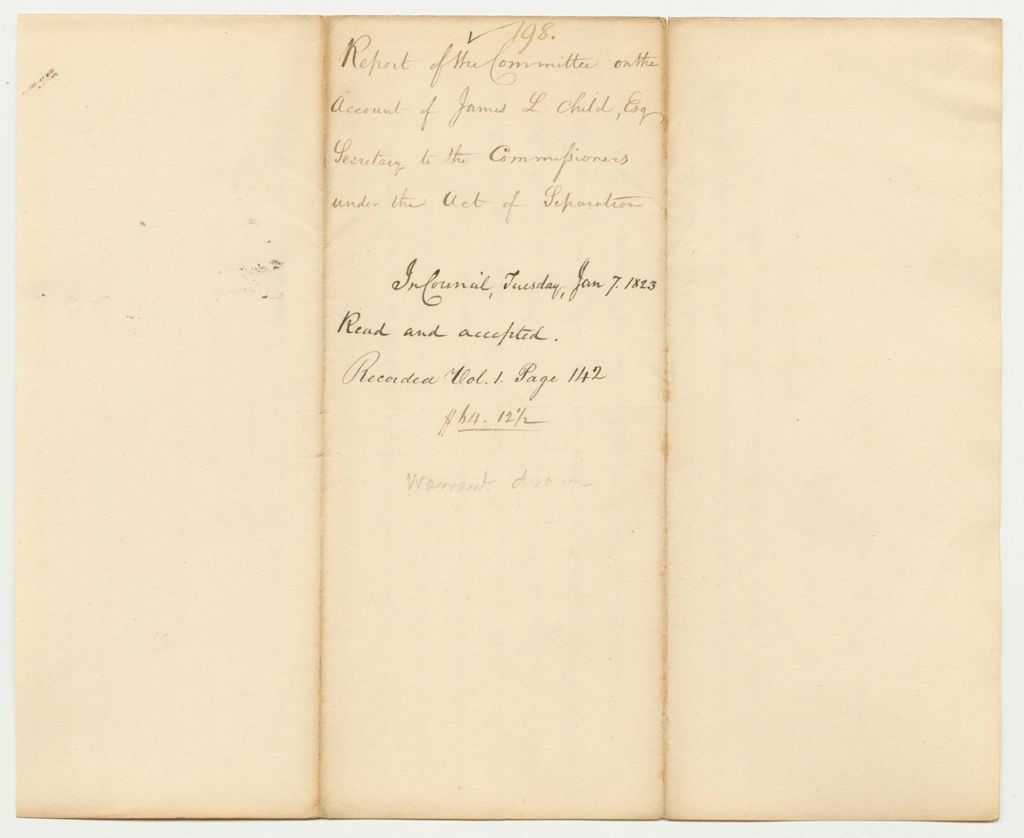 198.
Report of the Committee on the
Account of James L. Child, Esq
Secretary to the Commissioners
under the Act of Separation
In Council, Tuesday, Jan 7. 1823
Read and accepted.
Recorded Vol. 1. Page 142
$64. 12½
Warrant drawn